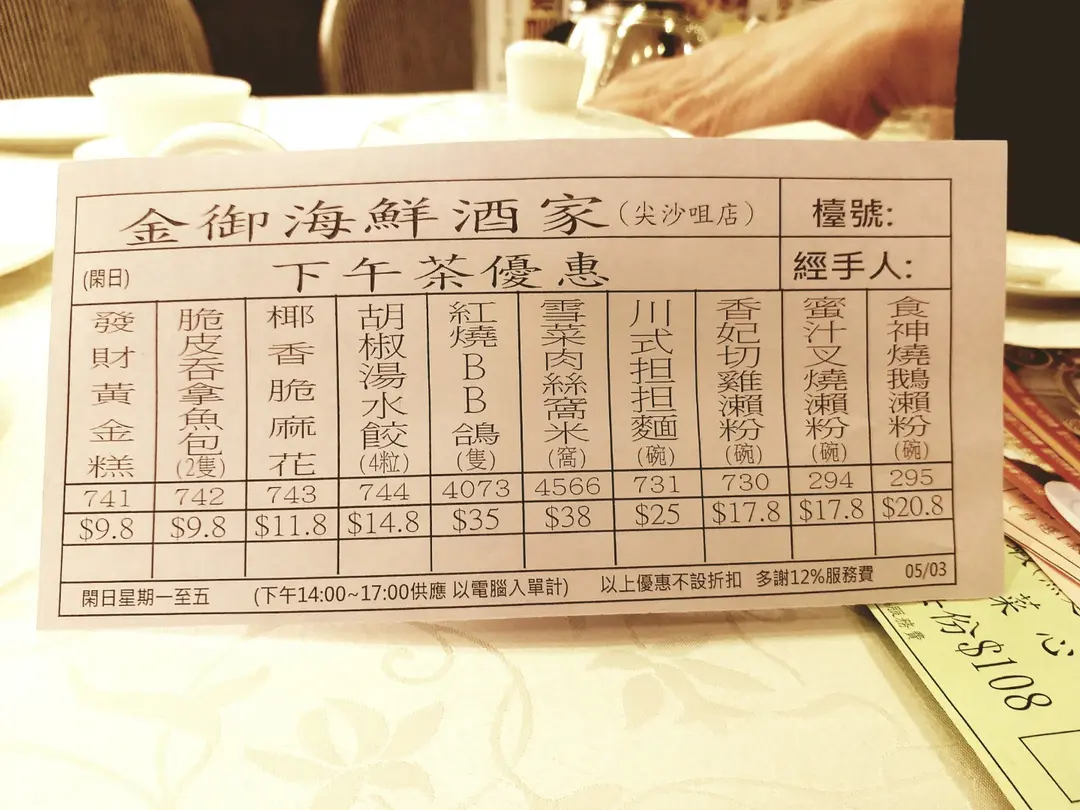 金御海鮮酒家(尖沙咀店)
檯號:
(閑日)
下午茶優惠
經手人:
食神燒鵝瀨粉(碗)
295
$20.8
蜜汁叉燒瀨粉(碗)
294
$17.8
香妃切雞瀨粉(碗)
730
$17.8
川式担担麵(碗)
731
$25
雪菜肉絲窩米(窩)
4566
$38
紅燒BB鴿(隻)
4073
$35
胡椒湯水餃(4粒)
744
$14.8
椰香脆麻花
743
$11.8
脆皮吞拿魚包(2隻)
742
$9.8
發財黃金糕
741
$9.8
閑日星期一至五
(下午14:00~17:00供應 以電腦入單計)
以上優惠不設折扣 多謝12%服務費
05/03
菜心
份$108
服務費